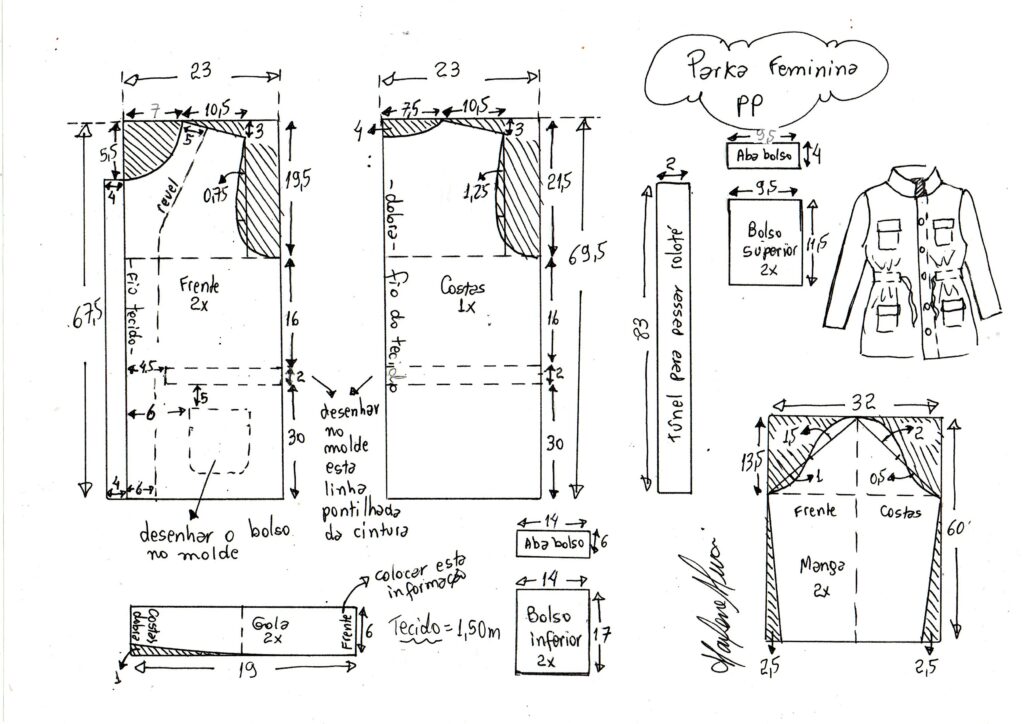 Parka Feminina
PP
23
7
10,5
3
5
5,5
4
revel
0,75
19,5
67,5
Fio tecido
Frente
2x
16
4,5
2
5
6
30
4
6
desenhar o bolso
no molde
desenhar
no
molde
esta
linha
pontilhada
da cintura
23
7,5
10,5
4
3
1,25
21,5
69,5
dobra
Fio do tecido
Costas
1x
16
2
30
2
83
Túnel para passar roloté
9,5
Aba bolso
4
9,5
Bolso
superior
2x
11,5
32
13,5
1,5
2
1
0,5
Frente
Costas
60
Manga
2x
2,5
2,5
14
Aba bolso
6
14
Bolso
inferior
2x
17
colocar esta
informação
Costas
dobra
Gola
2x
Frente
6
1
19
Tecido = 1,50m